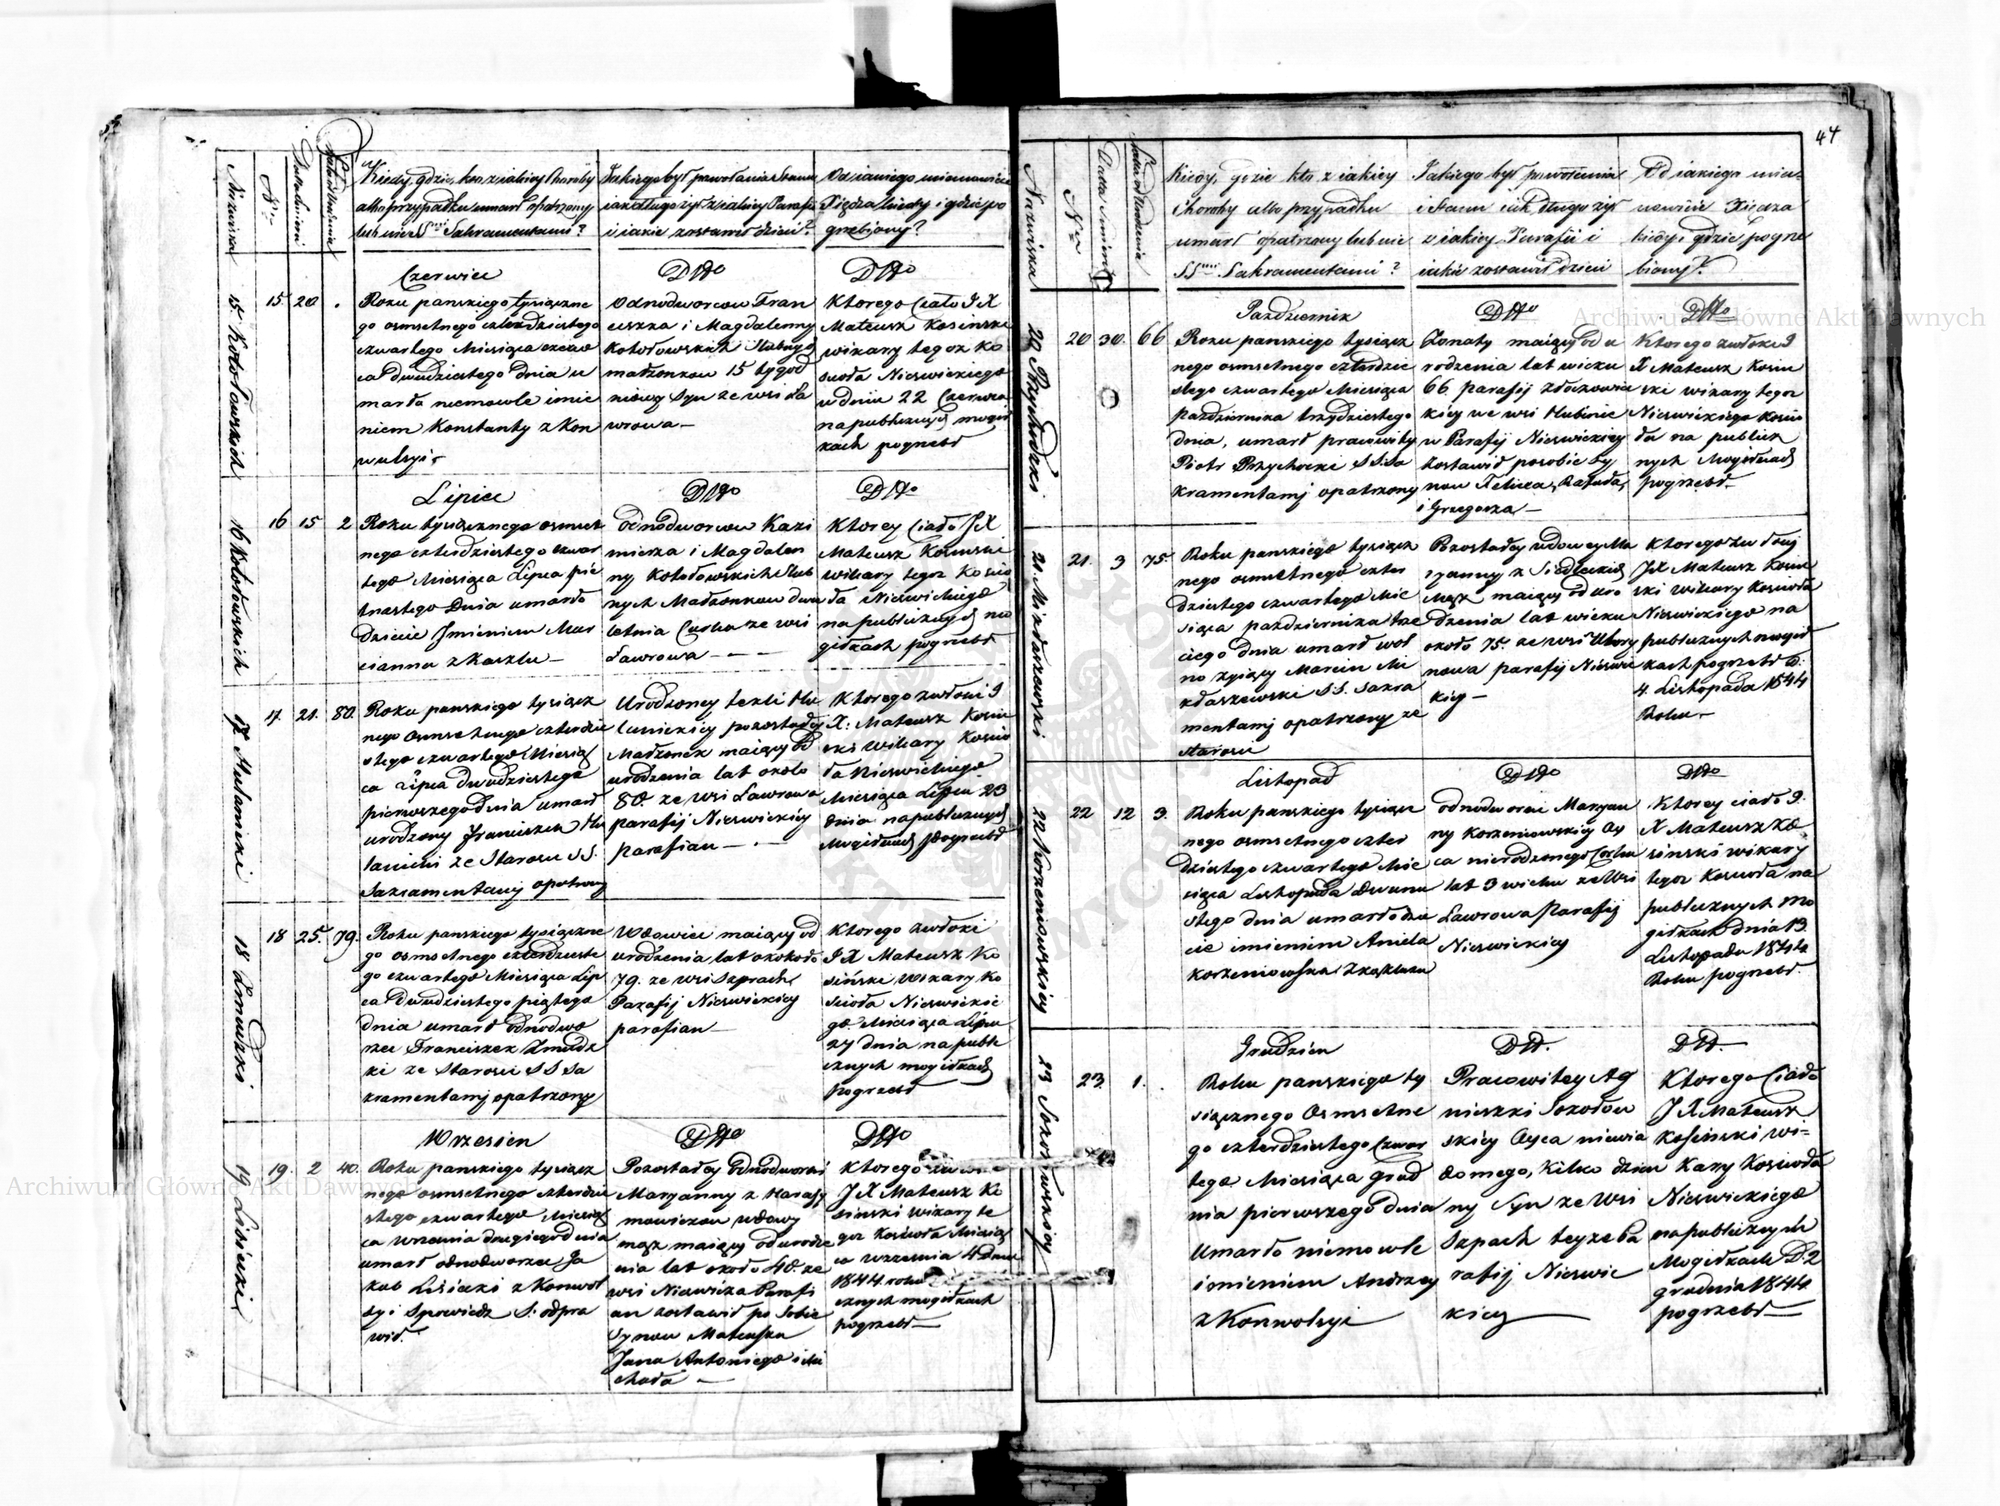 44
Nazwiska
Nro
Data śmierci
Kiedy, gdzie, kto z iakiey Choroby
albo przypadku umarł opatrzony
lub nie SSmi Sakramentami?
Jakiego był powołania i Stanu
iak długo żył z iakiey Parafii
i iakie zostawił dzieci?
Od iakiego mianowicie
Xiędza kiedy i gdzie po
grzebiony?
15 Kotołowskich
15 20
Czerwiec
Roku panskiego tysiączne
go osmsetnego czterdziestego
czwartego Miesiąca czerw
ca dwudziestego dnia u
marło niemowle imie
niem Konstanty z Kon
wulsyi
Dtto
Odnodworcow Fran
ciszka i Magdalenny
Kotołowskich Slubnych
małzonkow 15 tygod
niowy Syn ze wsi Ła
wrowa—
Dtto
Ktorego Ciało JX
Mateusz Kosinski
wikary tegoz Ko
scioła Nieswickiego
w dniu 22 Czerwca
na publicznych mogił
kach pogrzebł
16 Kotołowskich
16 15 2
Lipiec
Roku tysiącznego osmset
nego czterdziestego czwar
tego Miesiąca Lipca pię
tnastego Dnia umarło
dziecie Jmieniem Mar
cianna z Kaszlu—
Dtto
Odnodworcow Kazi
mierza i Magdalen
ny Kotołowskich Slub
nych Małzonkow dwu
letnia Curka ze wsi
Ławrowa— — —
Dtto
Ktorey Ciało JX
Mateusz Kosinski
wikary tegoz Koscio
ła Nieswickiego
na publicznych mo
giłkach pogrzebł
17 Hulanicki
17. 21. 80.
Roku panskiego tysiącz
nego Osmsetnego czterdzie
stego czwartego Miesią
ca Lipca dwudziestego
pierwszego Dnia umarł
urodzony Franciszek Hu
lanicki ze Starosci SS.
Sakramentami opatrzony
Urodzoney Tekli Hu
lanickiey pozostałey
Małzonek maiący od
urodzenia lat około
80. ze wsi Ławrowa
parafij Nieswickiey
parafian— . —
Ktorego zwłoki J
X. Mateusz Kosin
ski Wikary Koscio
ła Nieswickiego
Miesiąca Lipca 23
dnia na publicznych
Mogiłkach Pogrzebł
18 Zmudzki
18 25. 79.
Roku panskiego tysiączne
go osmsetnego czterdzieste
go czwartego Miesiąca Lip
ca Dwudziestego piątego
dnia umarł Odnodwo
rzec Franciszek Zmudz
ki ze Starosci SS Sa
kramentamj opatrzony
Wdowiec maiący od
urodzenia lat około
79. ze wsi Szprachi
Parafij Nieswickiey
parafian—
Ktorego zwłoki
JX Mateusz Ko
sinski Wikary Ko
scioła Nieswickie
go Miesiąca Lipca
27 dnia na publi
cznych mogiłkach
Pogrzebł
19 Lisicki
19. 2 40.
Wrzesien
Roku panskiego tysiącz
nego osmsetnego czterdzie
stego czwartego Miesią
ca Wrzesnia drugiego dnia
umarł odnodworzec Ja
kub Lisicki z Konwul
syi Spowiedz S. odpra
wił.
Dtto
Pozostałey Odnodworki
Maryanny z Harasy
mowiczow wdowy
mąz maiący od urodze
nia lat około 40. ze
wsi Nieswicza Parafi
an zostawił po Sobie
Synow Mateusza
Jana Antoniego i Mi
chała —
Dtto
Ktorego zwłoki
JX Mateusz Ko
sinski Wikary te
goz Koscioła Miesią
ca Wrzesnia 4 Dnia
1844 roku
cznych mogiłkach
pogrzebł—
Nazwiska
Nro
Data śmierci
Kiedy, gdzie kto z iakiey
Choroby albo przypadku
umarł opatrzony lub nie
SSmi Sakramentami?
Jakiego był powołania
i Stanu iak długo żył
z iakiey Parafii i
iakie zostawił dzieci
Od iakiego mia-
nowicie Xiędza
kiedy i gdzie pogrze
biony?
20 Przychodzki
20 30. 66
Pazdziernik
Roku panskiego tysiącz
nego osmsetnego czterdzie
stego czwartego Miesiąca
pazdziernika trzydziestego
dnia, umarł pracowity
Piotr Przychocki SS. Sa
kramentamj opatrzony
Dtto
Zonaty maiący od u
rodzenia lat wieku
66 parafij
kiey we wsi Hubinie
w Parafij Nieswickiey
Zostawił po sobie Sy
now Felixa, Rafała,
i Grzegorza—
Dtto
Ktorego zwłoki J
X Mateusz Kosin
ski wikary tegoz
Nieswickiego Koscio
ła na publicz
nych Mogiłkach
pogrzebł—
21. Mikłaszewski
21. 3 75.
Roku panskiego tysiącz
nego osmsetnego czter
dziestego czwartego Mie
siąca pazdziernika trze
ciego dnia umarł wol
no zyiący Marcin Mi
kłaszewski SS. Sakra
mentamj opatrzony ze
starosci
Pozostałey wdowy Ma
ryanny z Siedleckich
Mąz maiący od uro
dzenia lat wieku
około 75. ze wsi
nowa parafij Nieswic
kiey—
Ktorego zwłoki
JX Mateusz Kosin
ski wikary Kosciola
Nieswickiego na
publicznych mogił
kach pogrzebł D.
4. Listopada 1844
Roku—
22 Korzeniowskiey
22 12 3.
Listopad
Roku panskiego tysiącz
nego osmsetnego czter
dziestego czwartego Mie
siąca Listopada Dwuna
stego dnia umarło dzie
cie imieniem Aniela
Korzeniowska z kaszlu
Dtto
Odnodworki Maryan
ny Korzeniowskiey Oy
ca nierodzonego Corka
lat 3 wieku ze Wsi
Ławrowa Parafij
Nieswickiey
Dtto
Ktorey ciało J.
X Mateusz Ko-
sinski wikary
tegoz Kosciola na
publicznych Mo
giłkach dnia 13
Listopada 1844
Roku pogrzebł.
23 Sokołowskiey
23. 1. .
Grudzien
Roku panskiego ty
siącznego Osmsetne
go czterdziestego Czwar
tego Miesiąca grud
nia pierwszego dnia
Umarło niemowle
imieniem Andrzey
z Konwolsyi
Dtt.
Pracowitey Ag
nieszki Sokołow
skiey Oyca niewia
domego, kilko dzien
ny Syn ze Wsi
Szpach teyze Pa
rafij Nieswic
kiey—
Dtt.
Ktorego Ciało
JX Mateusz
Kosinski wi=
kary Kosciola
Nieswickiego
na publicznych
Mogiłkach D. 2
grudnia 1844
pogrzebł—
Archiwum Główne Akt Dawnych
Archiwum Główne Akt Dawnych